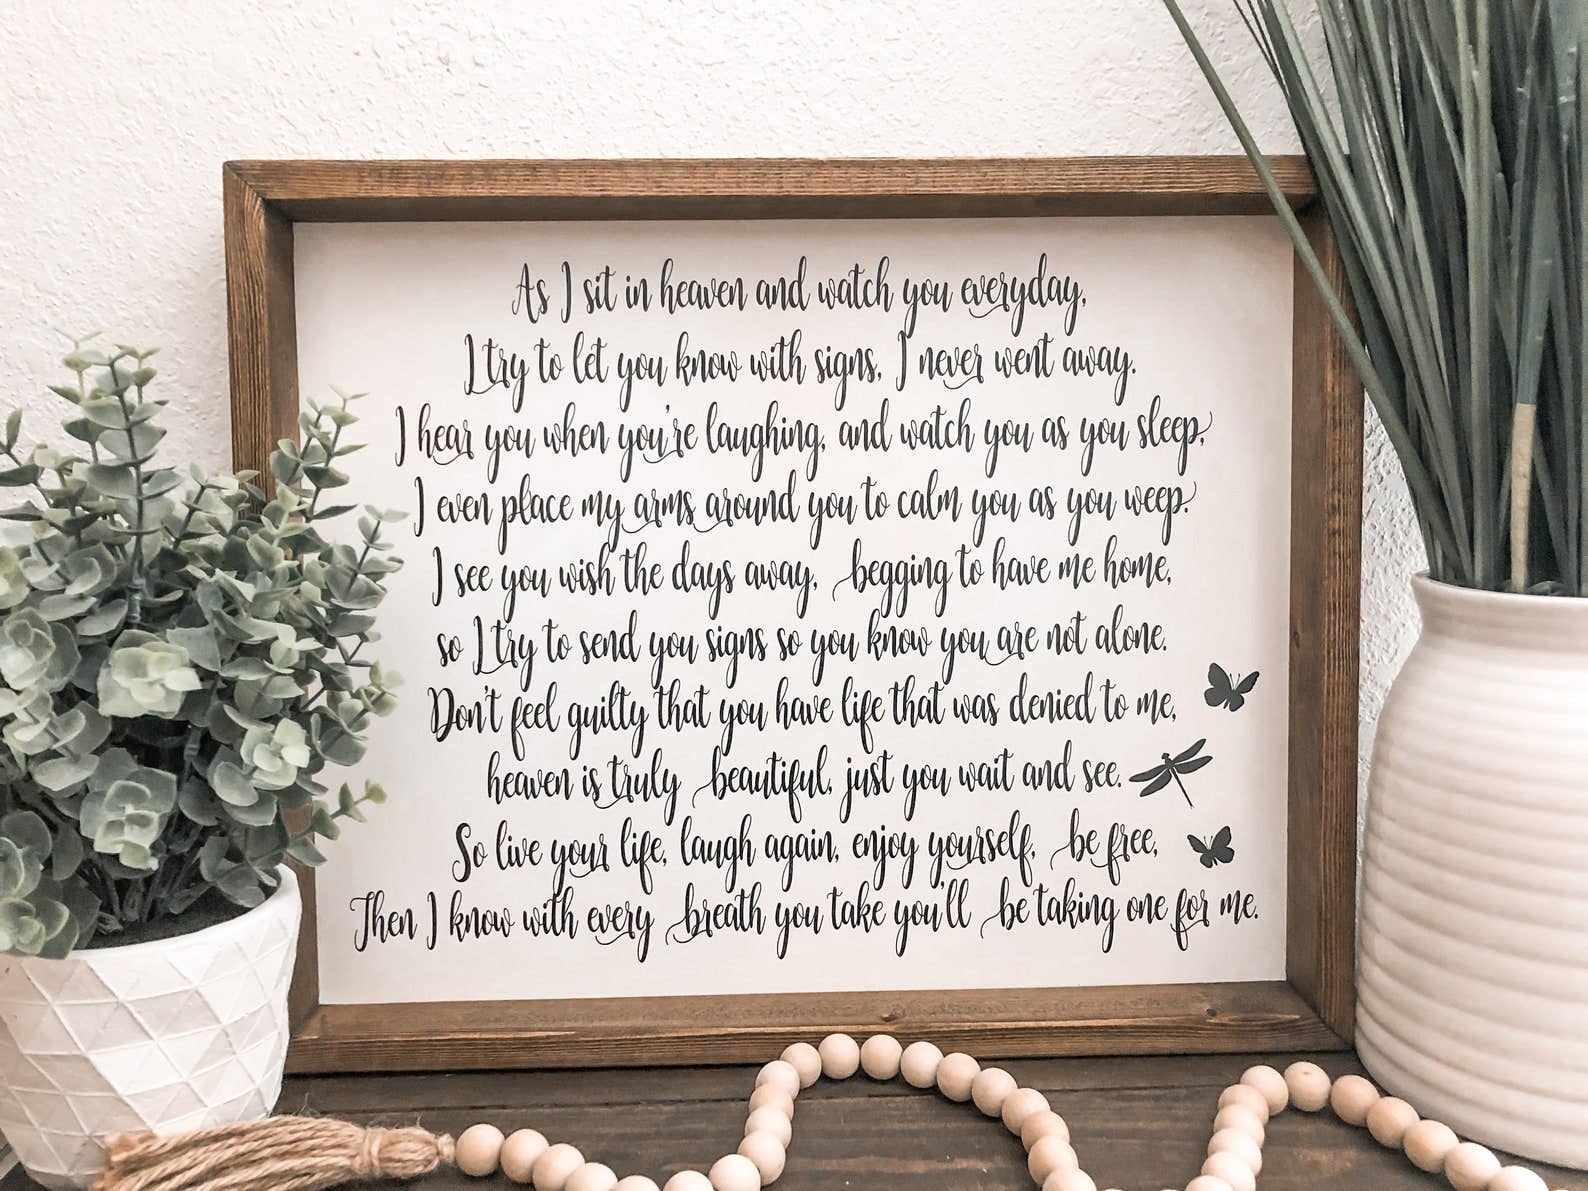 As I sit in heaven and watch you everyday,
I try to let you know with signs, I never went away.
I hear you when you're laughing, and watch you as you sleep,
I even place my arms around you to calm you as you weep.
I see you wish the days away, begging to have me home,
so I try to send you signs so you know you are not alone.
Don't feel guilty that you have life that was denied to me,
heaven is truly beautiful, just you wait and see.
So live your life, laugh again, enjoy yourself, be free,
Then I know with every breath you take you'll be taking one for me.